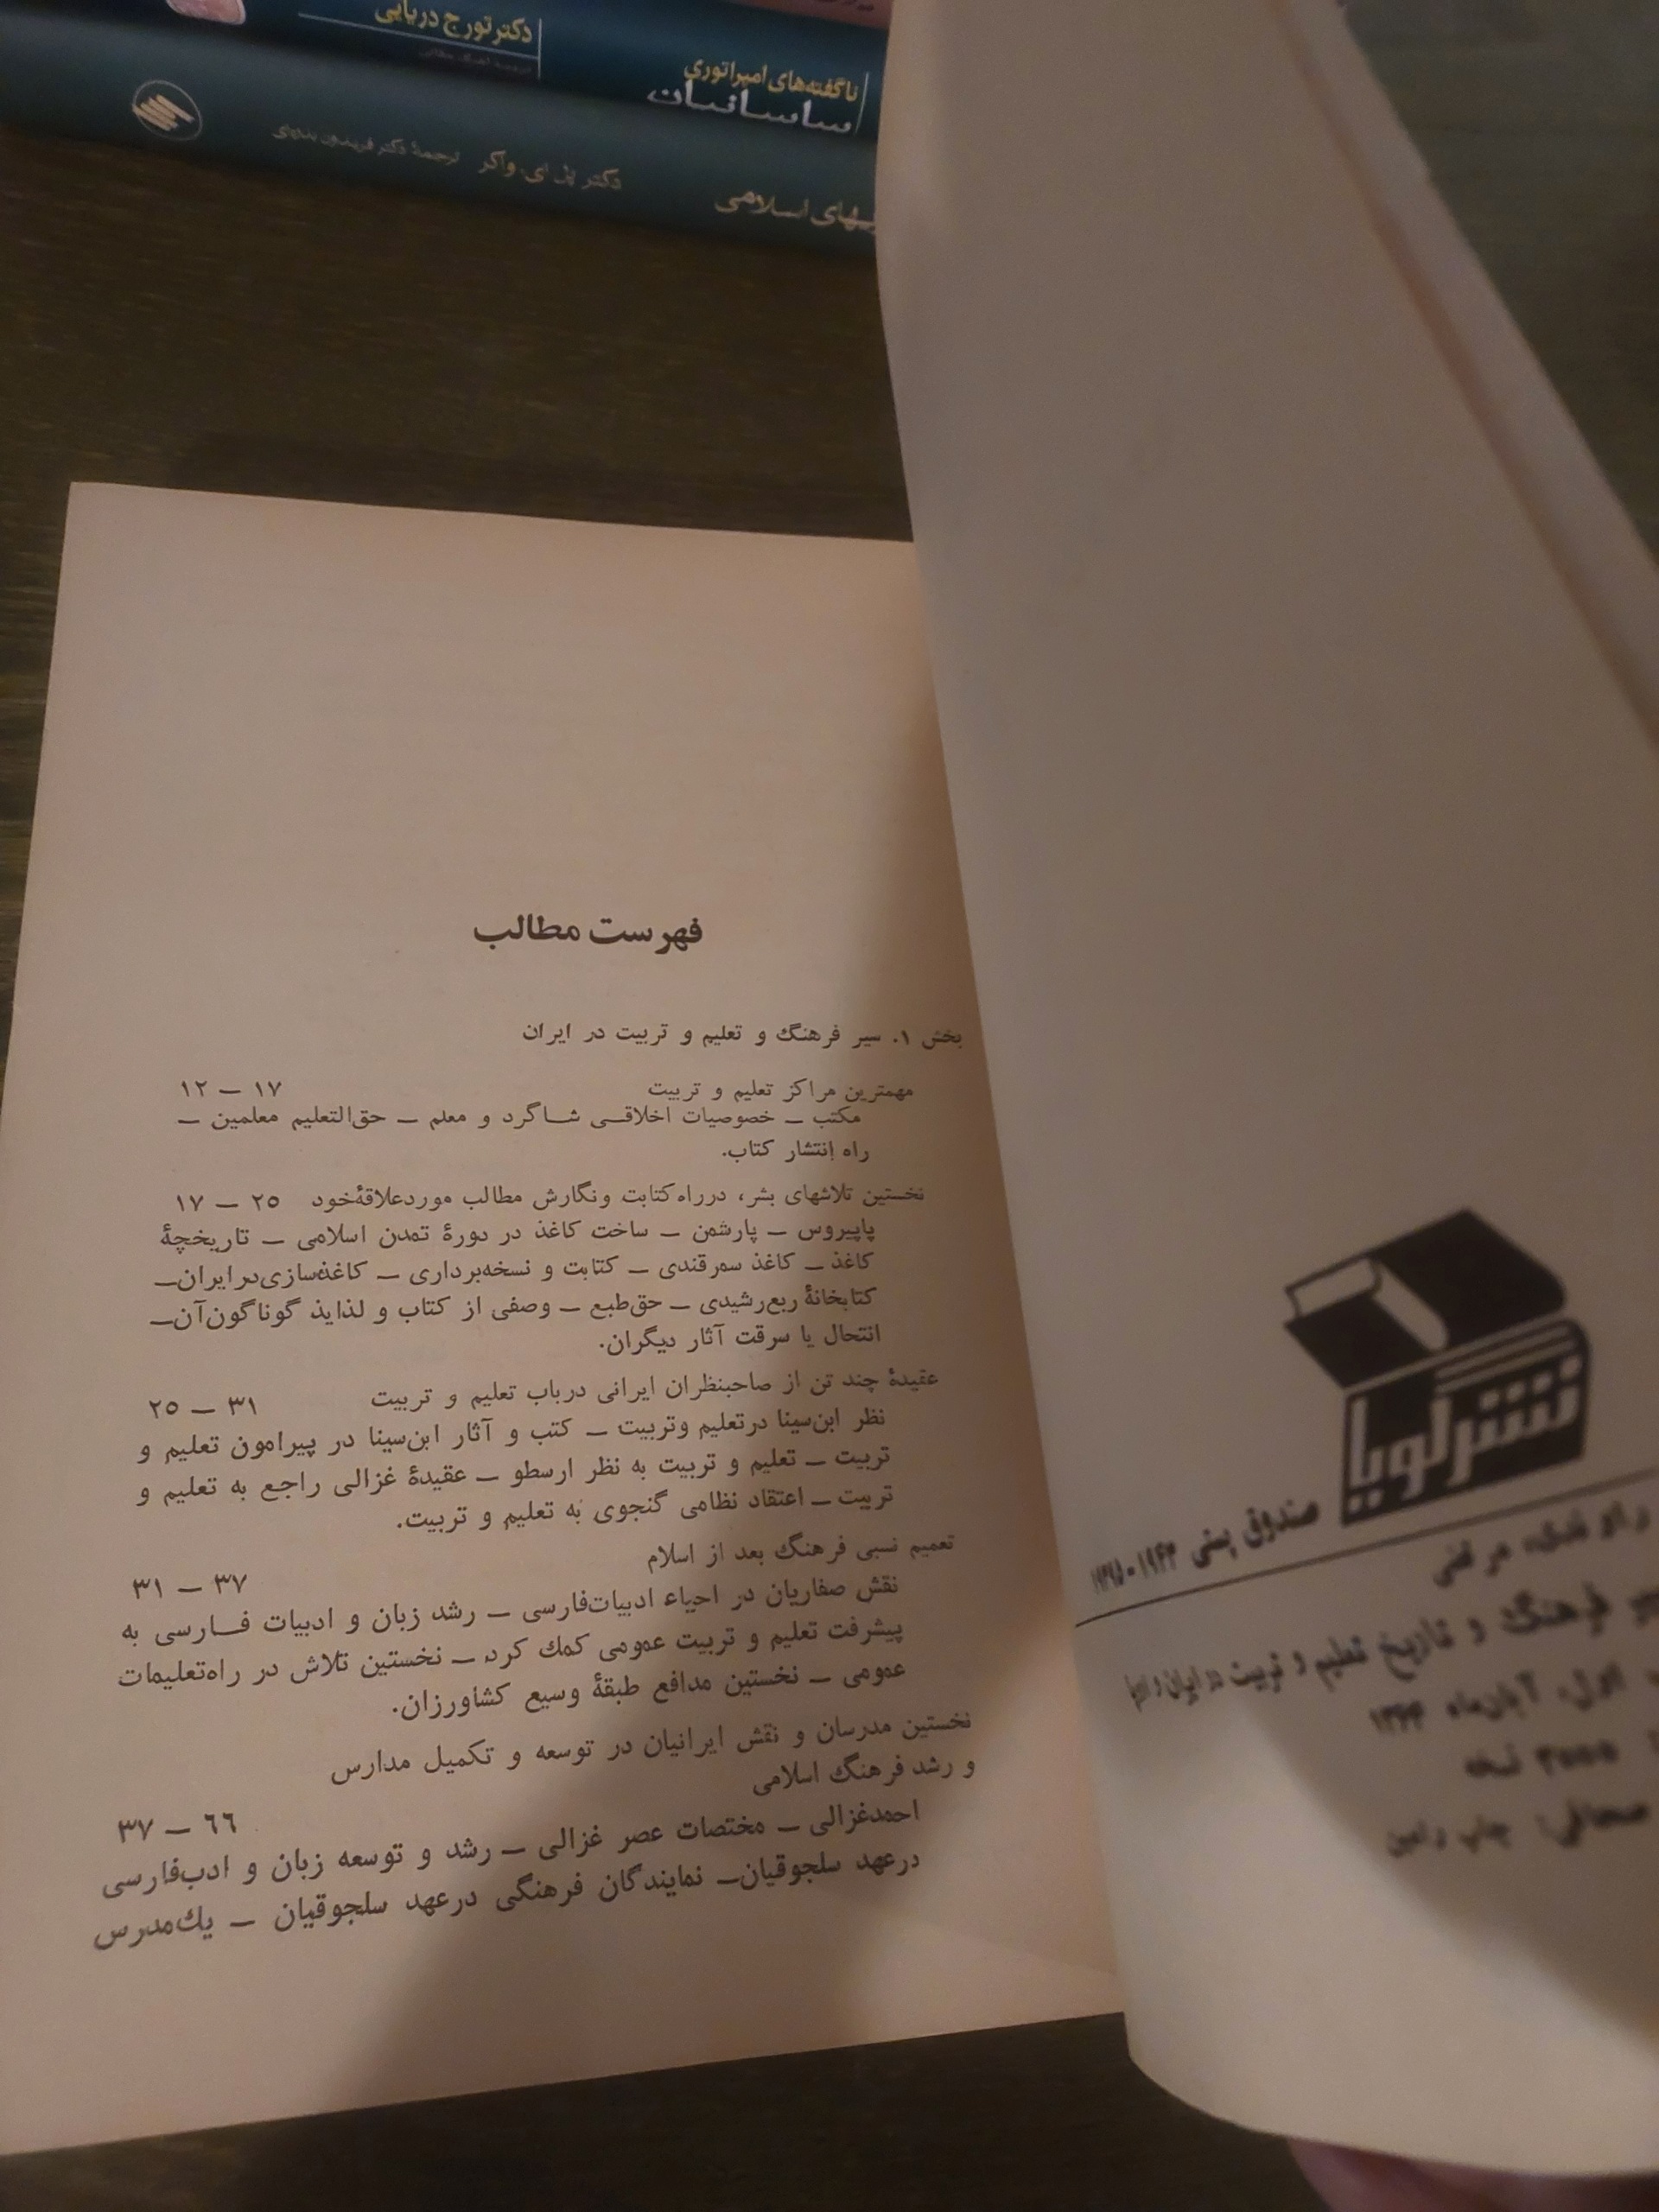 دکتر تورج دریایی
ناگفته‌های امپراتوری
ساسانیان
دکتر پل ای. واکر ترجمهٔ دکتر فریدون بدره‌ای
اسلامی
نشر گویا
صندوق پستی
مرتضی
فرهنگ و تاریخ تعلیم و تربیت در ایران و اروپا
اول، آبان‌ماه ۱۳۶۴
۳۰۰۰ نسخه
صحافی: چاپ رامین
فهرست مطالب
بخش ۱. سیر فرهنگ و تعلیم و تربیت در ایران
مهمترین مراکز تعلیم و تربیت ۱۷ — ۱۲
مکتب — خصوصیات اخلاقی شاگرد و معلم — حق‌التعلیم معلمین —
راه انتشار کتاب.
نخستین تلاشهای بشر، درراه کتابت ونگارش مطالب موردعلاقهٔ‌خود ۲۵ — ۱۷
پاپیروس — پارشمن — ساخت کاغذ در دورهٔ تمدن اسلامی — تاریخچهٔ
کاغذ — کاغذ سمرقندی — کتابت و نسخه‌برداری — کاغذسازی‌درایران—
کتابخانهٔ ربع‌رشیدی — حق‌طبع — وصفی از کتاب و لذاید گوناگون‌آن—
انتحال یا سرقت آثار دیگران.
عقیدهٔ چند تن از صاحبنظران ایرانی درباب تعلیم و تربیت ۳۱ — ۲۵
نظر ابن‌سینا درتعلیم وتربیت — کتب و آثار ابن‌سینا در پیرامون تعلیم و
تربیت — تعلیم و تربیت به نظر ارسطو — عقیدهٔ غزالی راجع به تعلیم و
تربیت — اعتقاد نظامی گنجوی به تعلیم و تربیت.
تعمیم نسبی فرهنگ بعد از اسلام ۳۷ — ۳۱
نقش صفاریان در احیاء ادبیات‌فارسی — رشد زبان و ادبیات فارسی به
پیشرفت تعلیم و تربیت عمومی کمك کرد — نخستین تلاش در راه‌تعلیمات
عمومی — نخستین مدافع طبقهٔ وسیع کشاورزان.
نخستین مدرسان و نقش ایرانیان در توسعه و تکمیل مدارس
و رشد فرهنگ اسلامی ۶۶ — ۳۷
احمدغزالی — مختصات عصر غزالی — رشد و توسعه زبان و ادب‌فارسی
درعهد سلجوقیان— نمایندگان فرهنگی درعهد سلجوقیان — یك‌مدرس